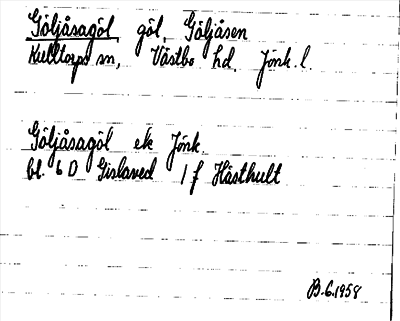 Göljåsagöl göl, Göljåsen
Kulltorps sn, Västbo hd. Jönk. l.
Göljåsagöl ek Jönk.
bl. 6 D Gislaved 1 f Hästhult
B.G.1958